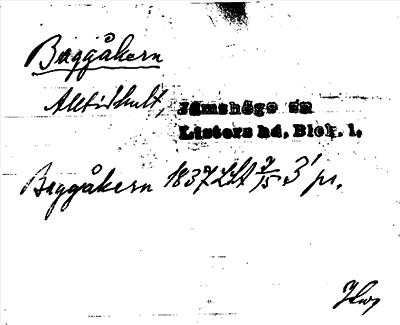 Baggåkern
Altidhult, Jämshögs sn
Listers hd, Blek. l.
Baggåkern 1837 LSA 9/15 3' pr.